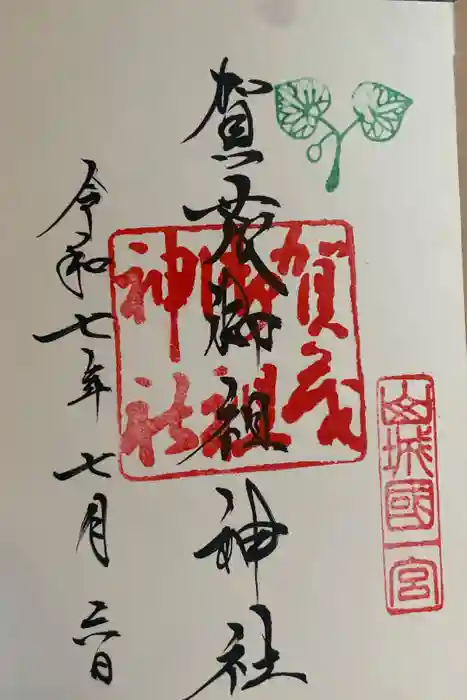 山城國一宮
賀茂御祖神社
賀茂
御祖
神社
令和七年七月六日